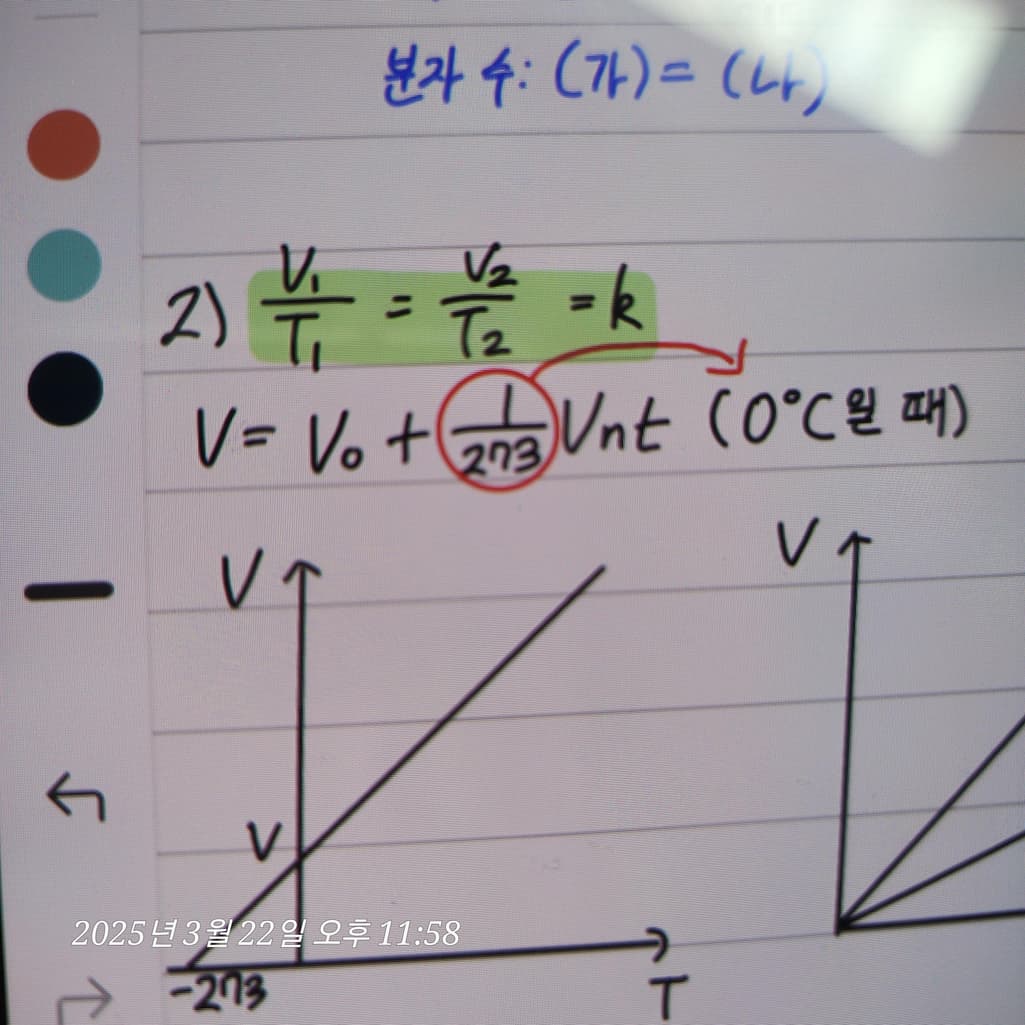 분자 수: (가) = (나)
2) V₁/T₁ = V₂/T₂ = k
V = V₀ + 1/273 Vnt (0°C일 때)
V
V
V
-273
T
2025년 3월 22일 오후 11:58